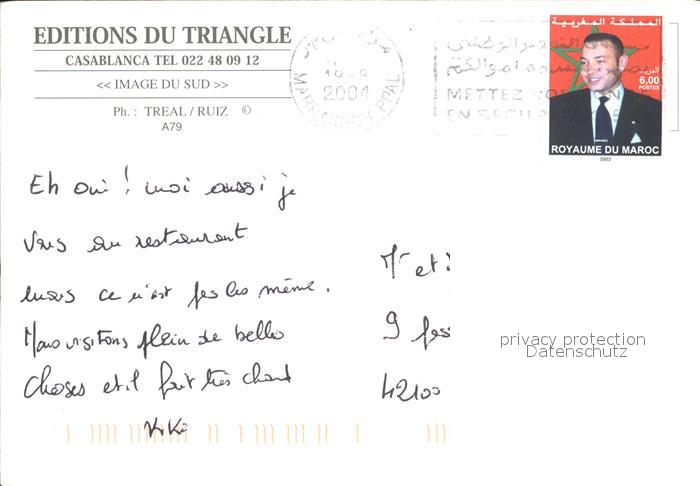 EDITIONS DU TRIANGLE
CASABLANCA TEL 022 48 09 12
<< IMAGE DU SUD >>
Ph. : TREAL / RUIZ ©
A79
MARRAKECH PPAL
2004
METTEZ
EN SECUR
المملكة المغربية
البريد
6,00
POSTES
ROYAUME DU MAROC
2002
Eh oui ! moi aussi je
vais au restaurant
mais ce n'est pas les même.
Nous visitons plein de belles
choses et il fait très chaud
Kiki
Mr et
9
42100
privacy protection
Datenschutz